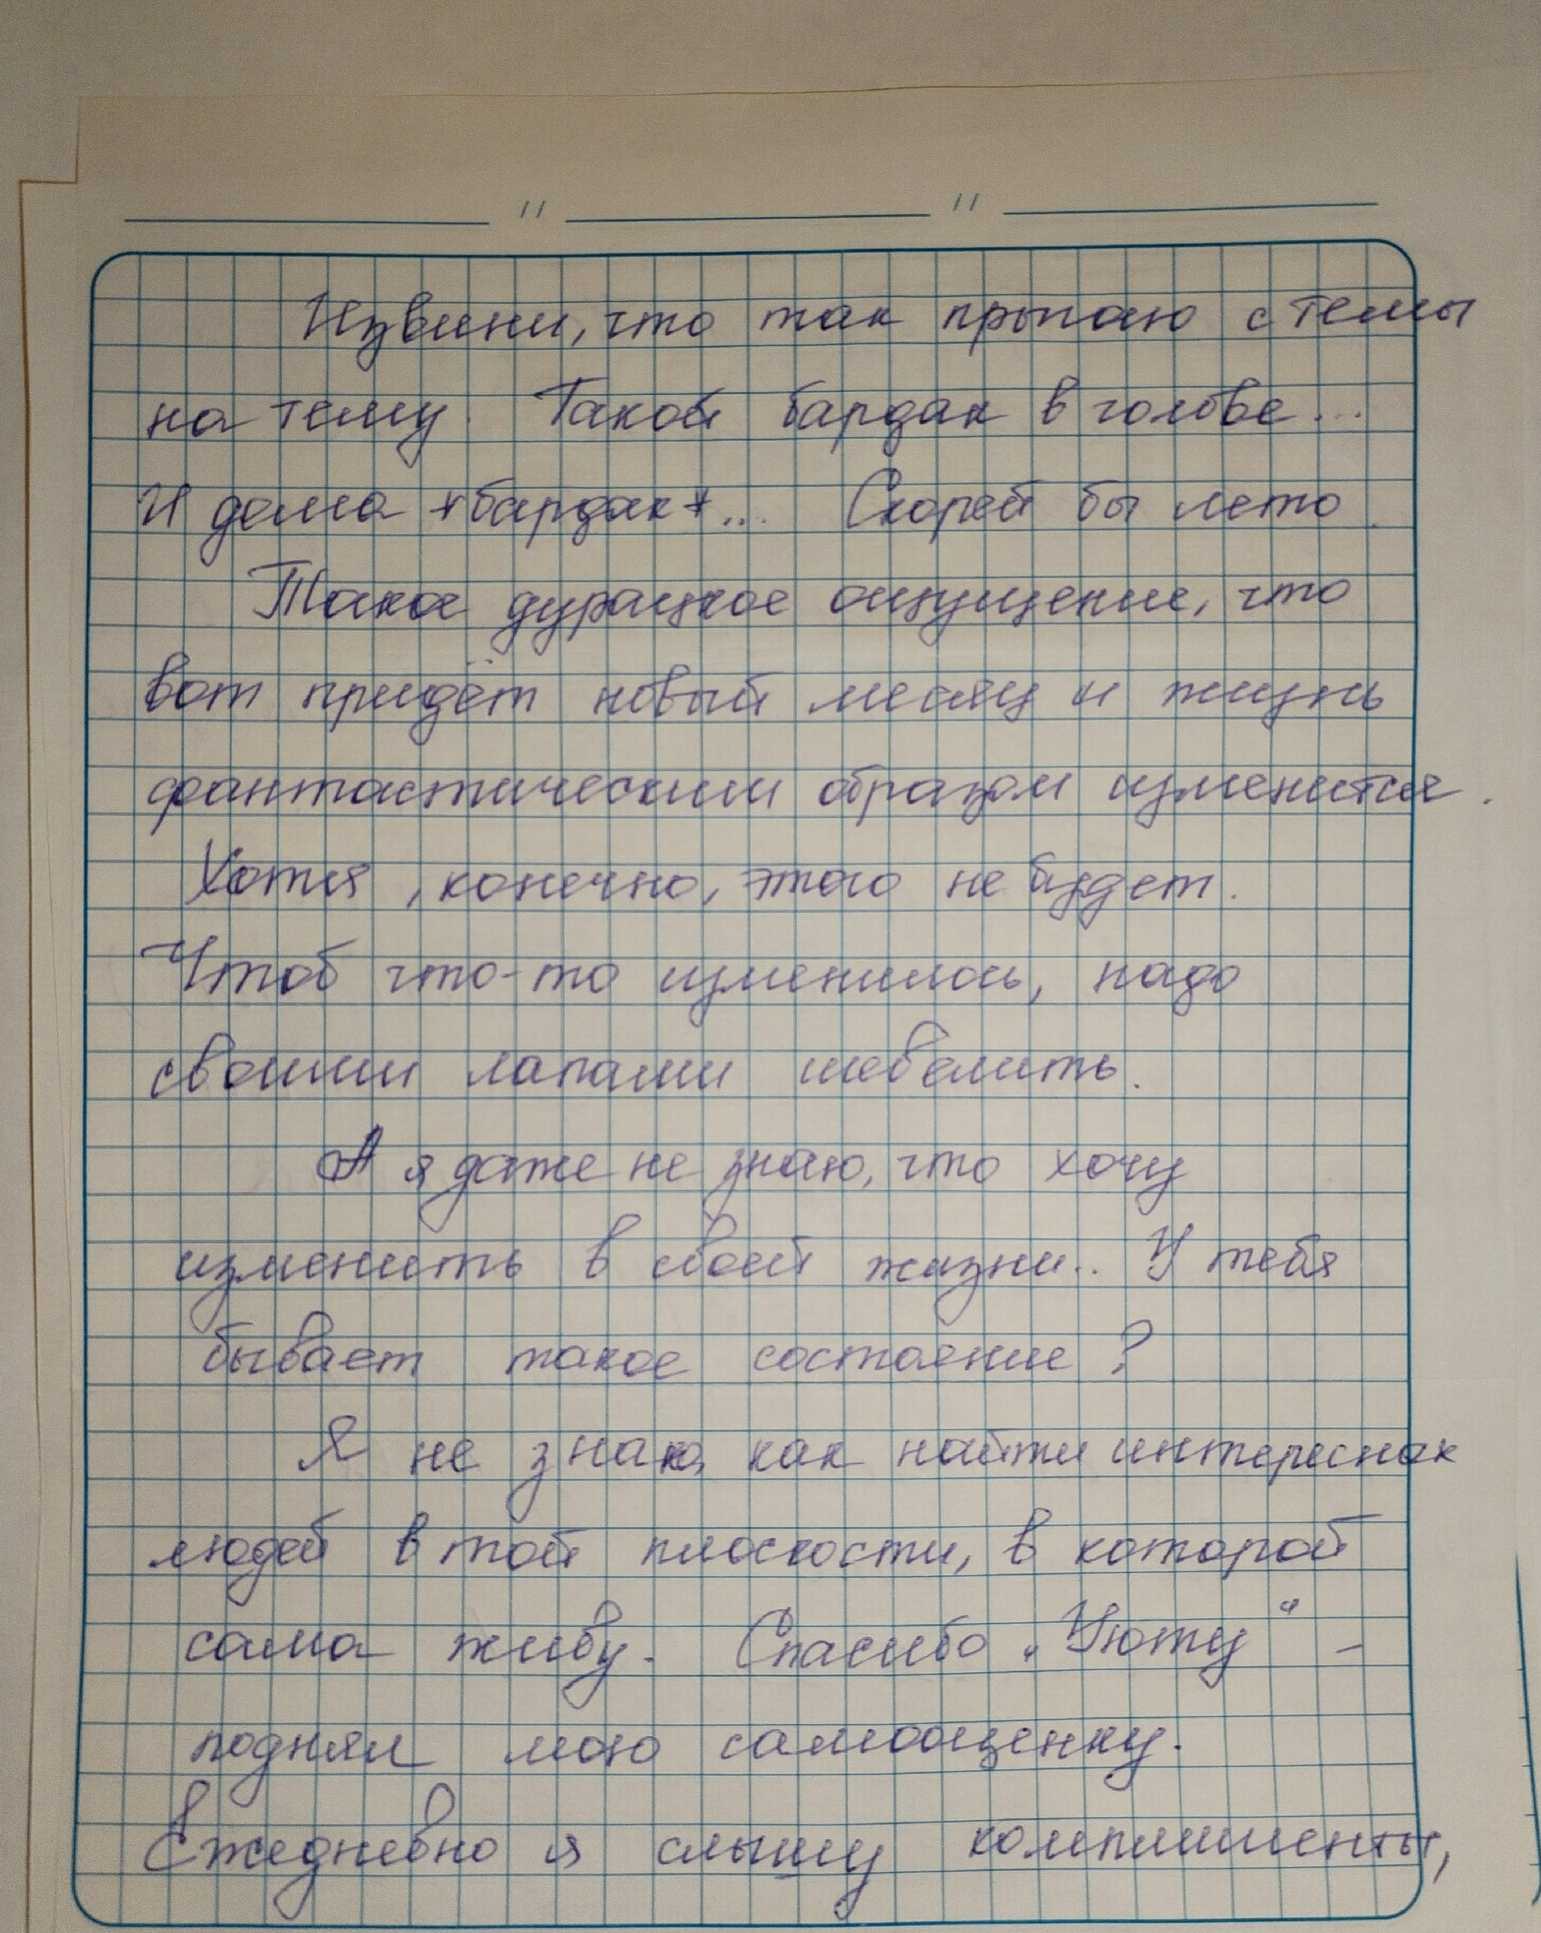 Извини, что так прыгаю с темы
на тему. Такой бардак в голове...
И дома *бардак*... Скорей бы лето.
Такое дурацкое ощущение, что
вот придёт новый месяц и жизнь
фантастическим образом изменится.
Хотя, конечно, этого не будет.
Чтоб что-то изменилось, надо
своими лапами шевелить.
А я даже не знаю, что хочу
изменить в своей жизни.. У тебя
бывает такое состояние?
Я не знаю, как найти интересных
людей в той плоскости, в которой
сама живу. Спасибо „Уюту“ –
поднял мою самооценку.
Ежедневно я слышу комплименты,